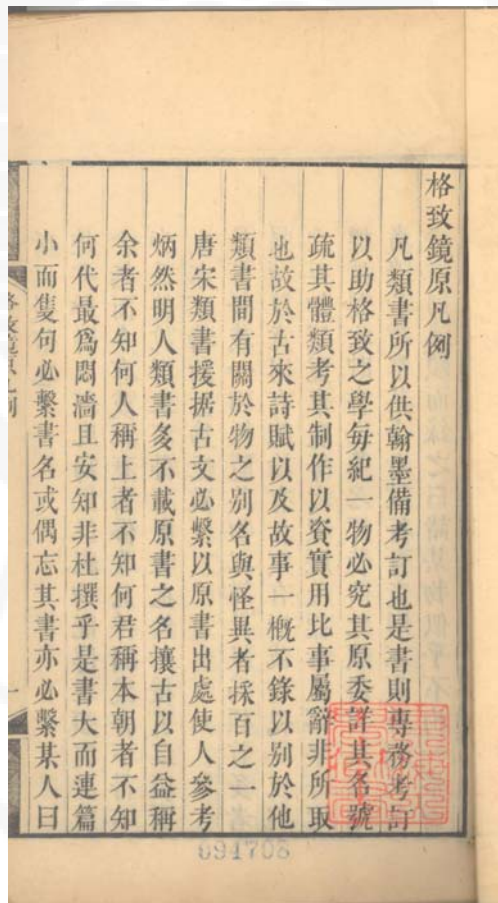 格致鏡原凡例
凡類書所以供翰墨備考訂也是書則專務考訂
以助格致之學每紀一物必究其原委詳其名號
疏其體類考其制作以資實用比事屬辭非所取
也故於古來詩賦以及故事一槪不錄以別於他
類書間有關於物之別名與怪異者採百之一
唐宋類書援据古文必繫以原書出處使人參考
炳然明人類書多不載原書之名攘古以自益稱
余者不知何人稱上者不知何君稱本朝者不知
何代最爲悶濇且安知非杜撰乎是書大而連篇
小而隻句必繫書名或偶忘其書亦必繫某人曰
格致鏡原凡例
一
094708